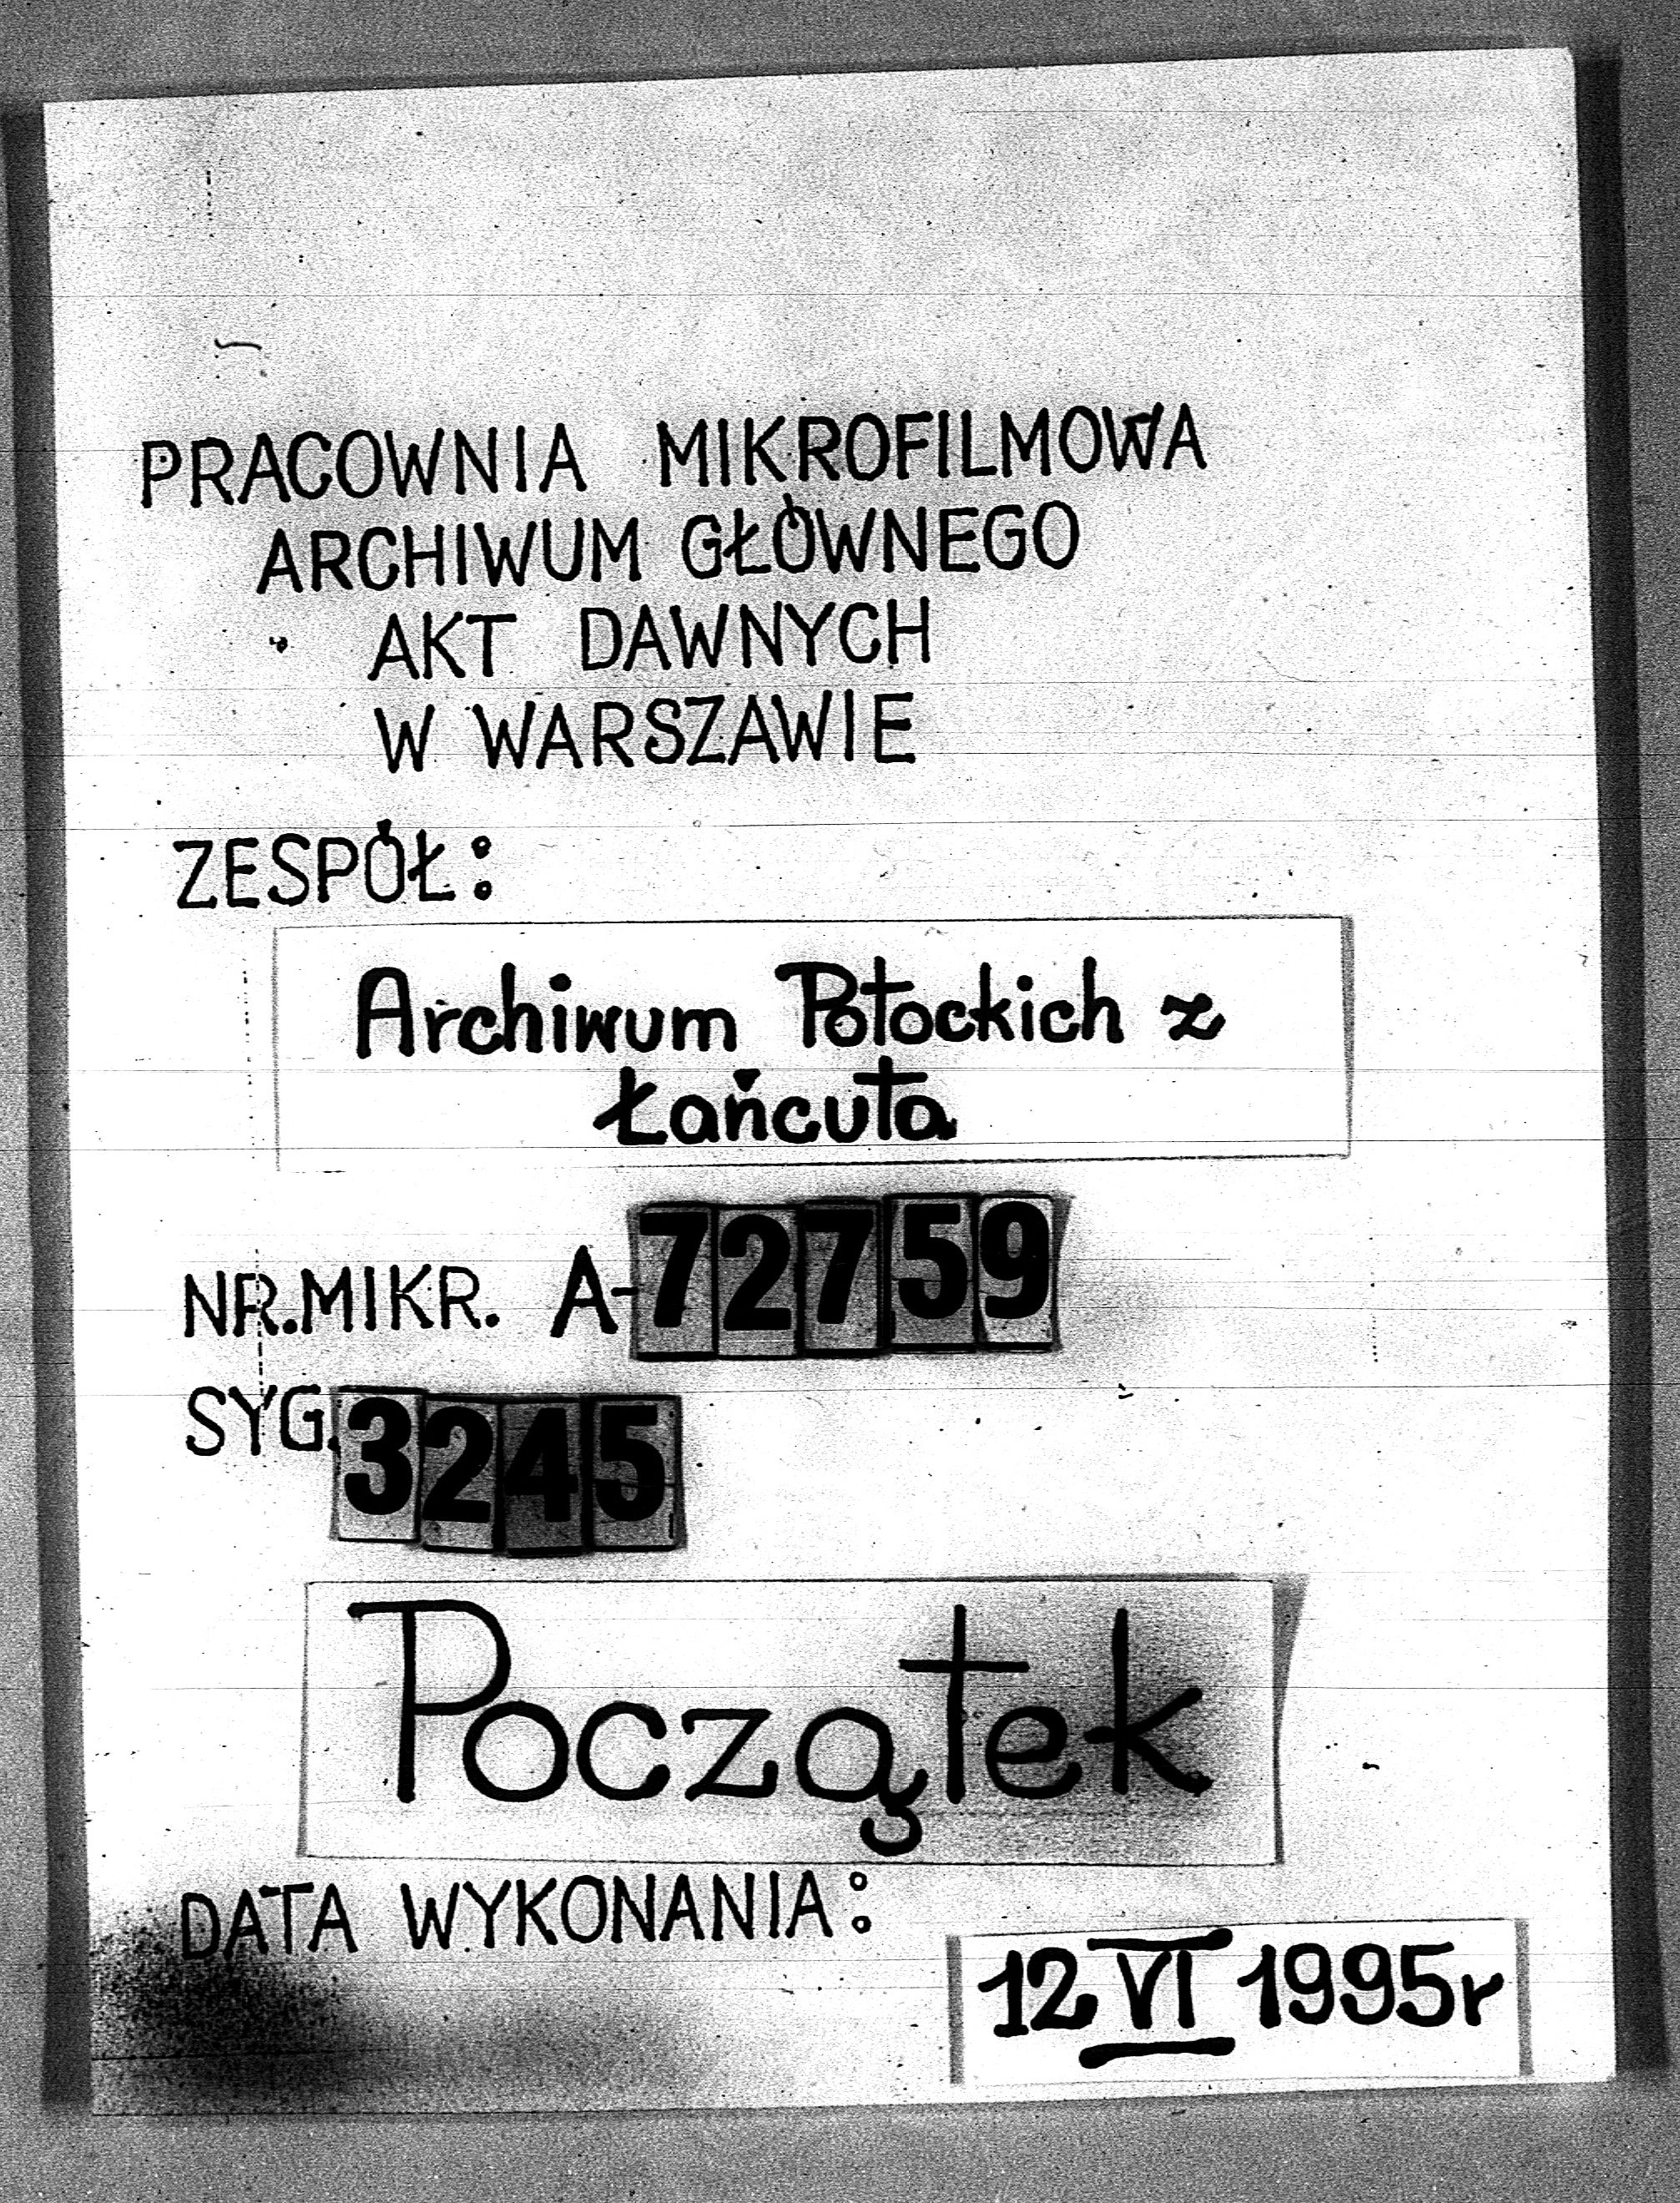 PRACOWNIA MIKROFILMOWA
ARCHIWUM GŁÓWNEGO
AKT DAWNYCH
W WARSZAWIE
ZESPÓŁ:
Archiwum Potockich z
Łańcuta
NR.MIKR. A-72759
SYG.3245
Początek
DATA WYKONANIA:
12 VI 1995r